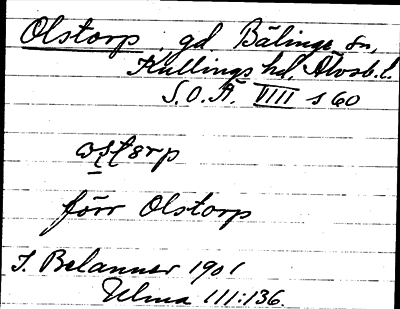 Olstorp gd Bälinge sn,
Kullings hd. Älvsb. l.
S.O.Ä. VIII s 60
förr Olstorp
J. Belanner 1901
Ulma 111:136.